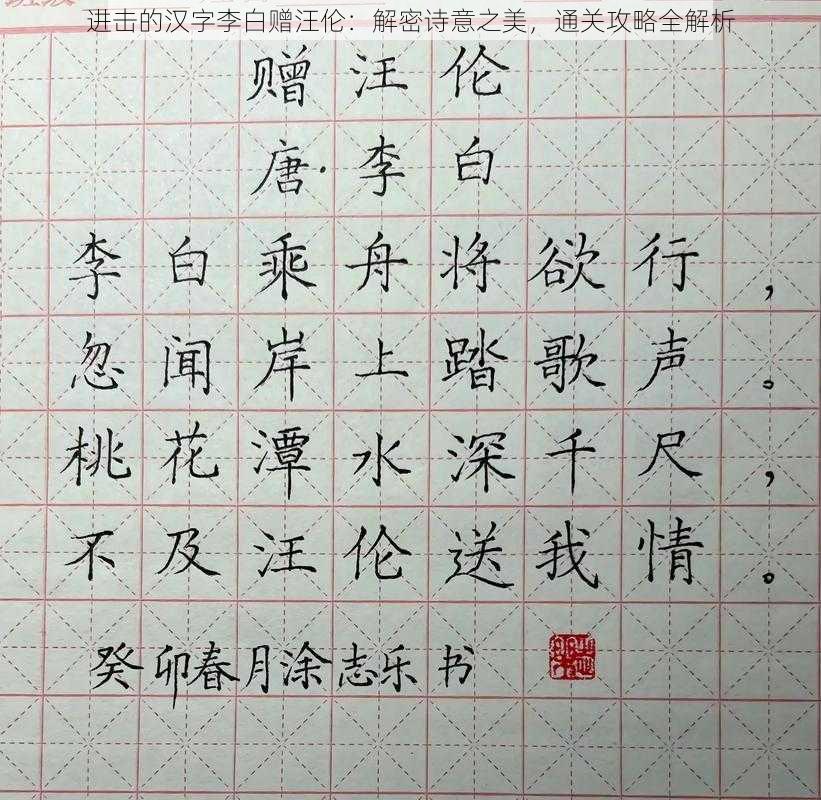 进击的汉字李白赠汪伦：解密诗意之美，通关攻略全解析
赠汪伦
唐·李白
李白乘舟将欲行，
忽闻岸上踏歌声。
桃花潭水深千尺，
不及汪伦送我情。
癸卯春月涂志乐书